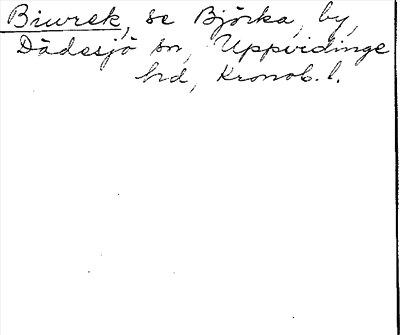 Biurek, se Björka, by,
Dädesjö sn, Uppvidinge
hd, Kronob. l.